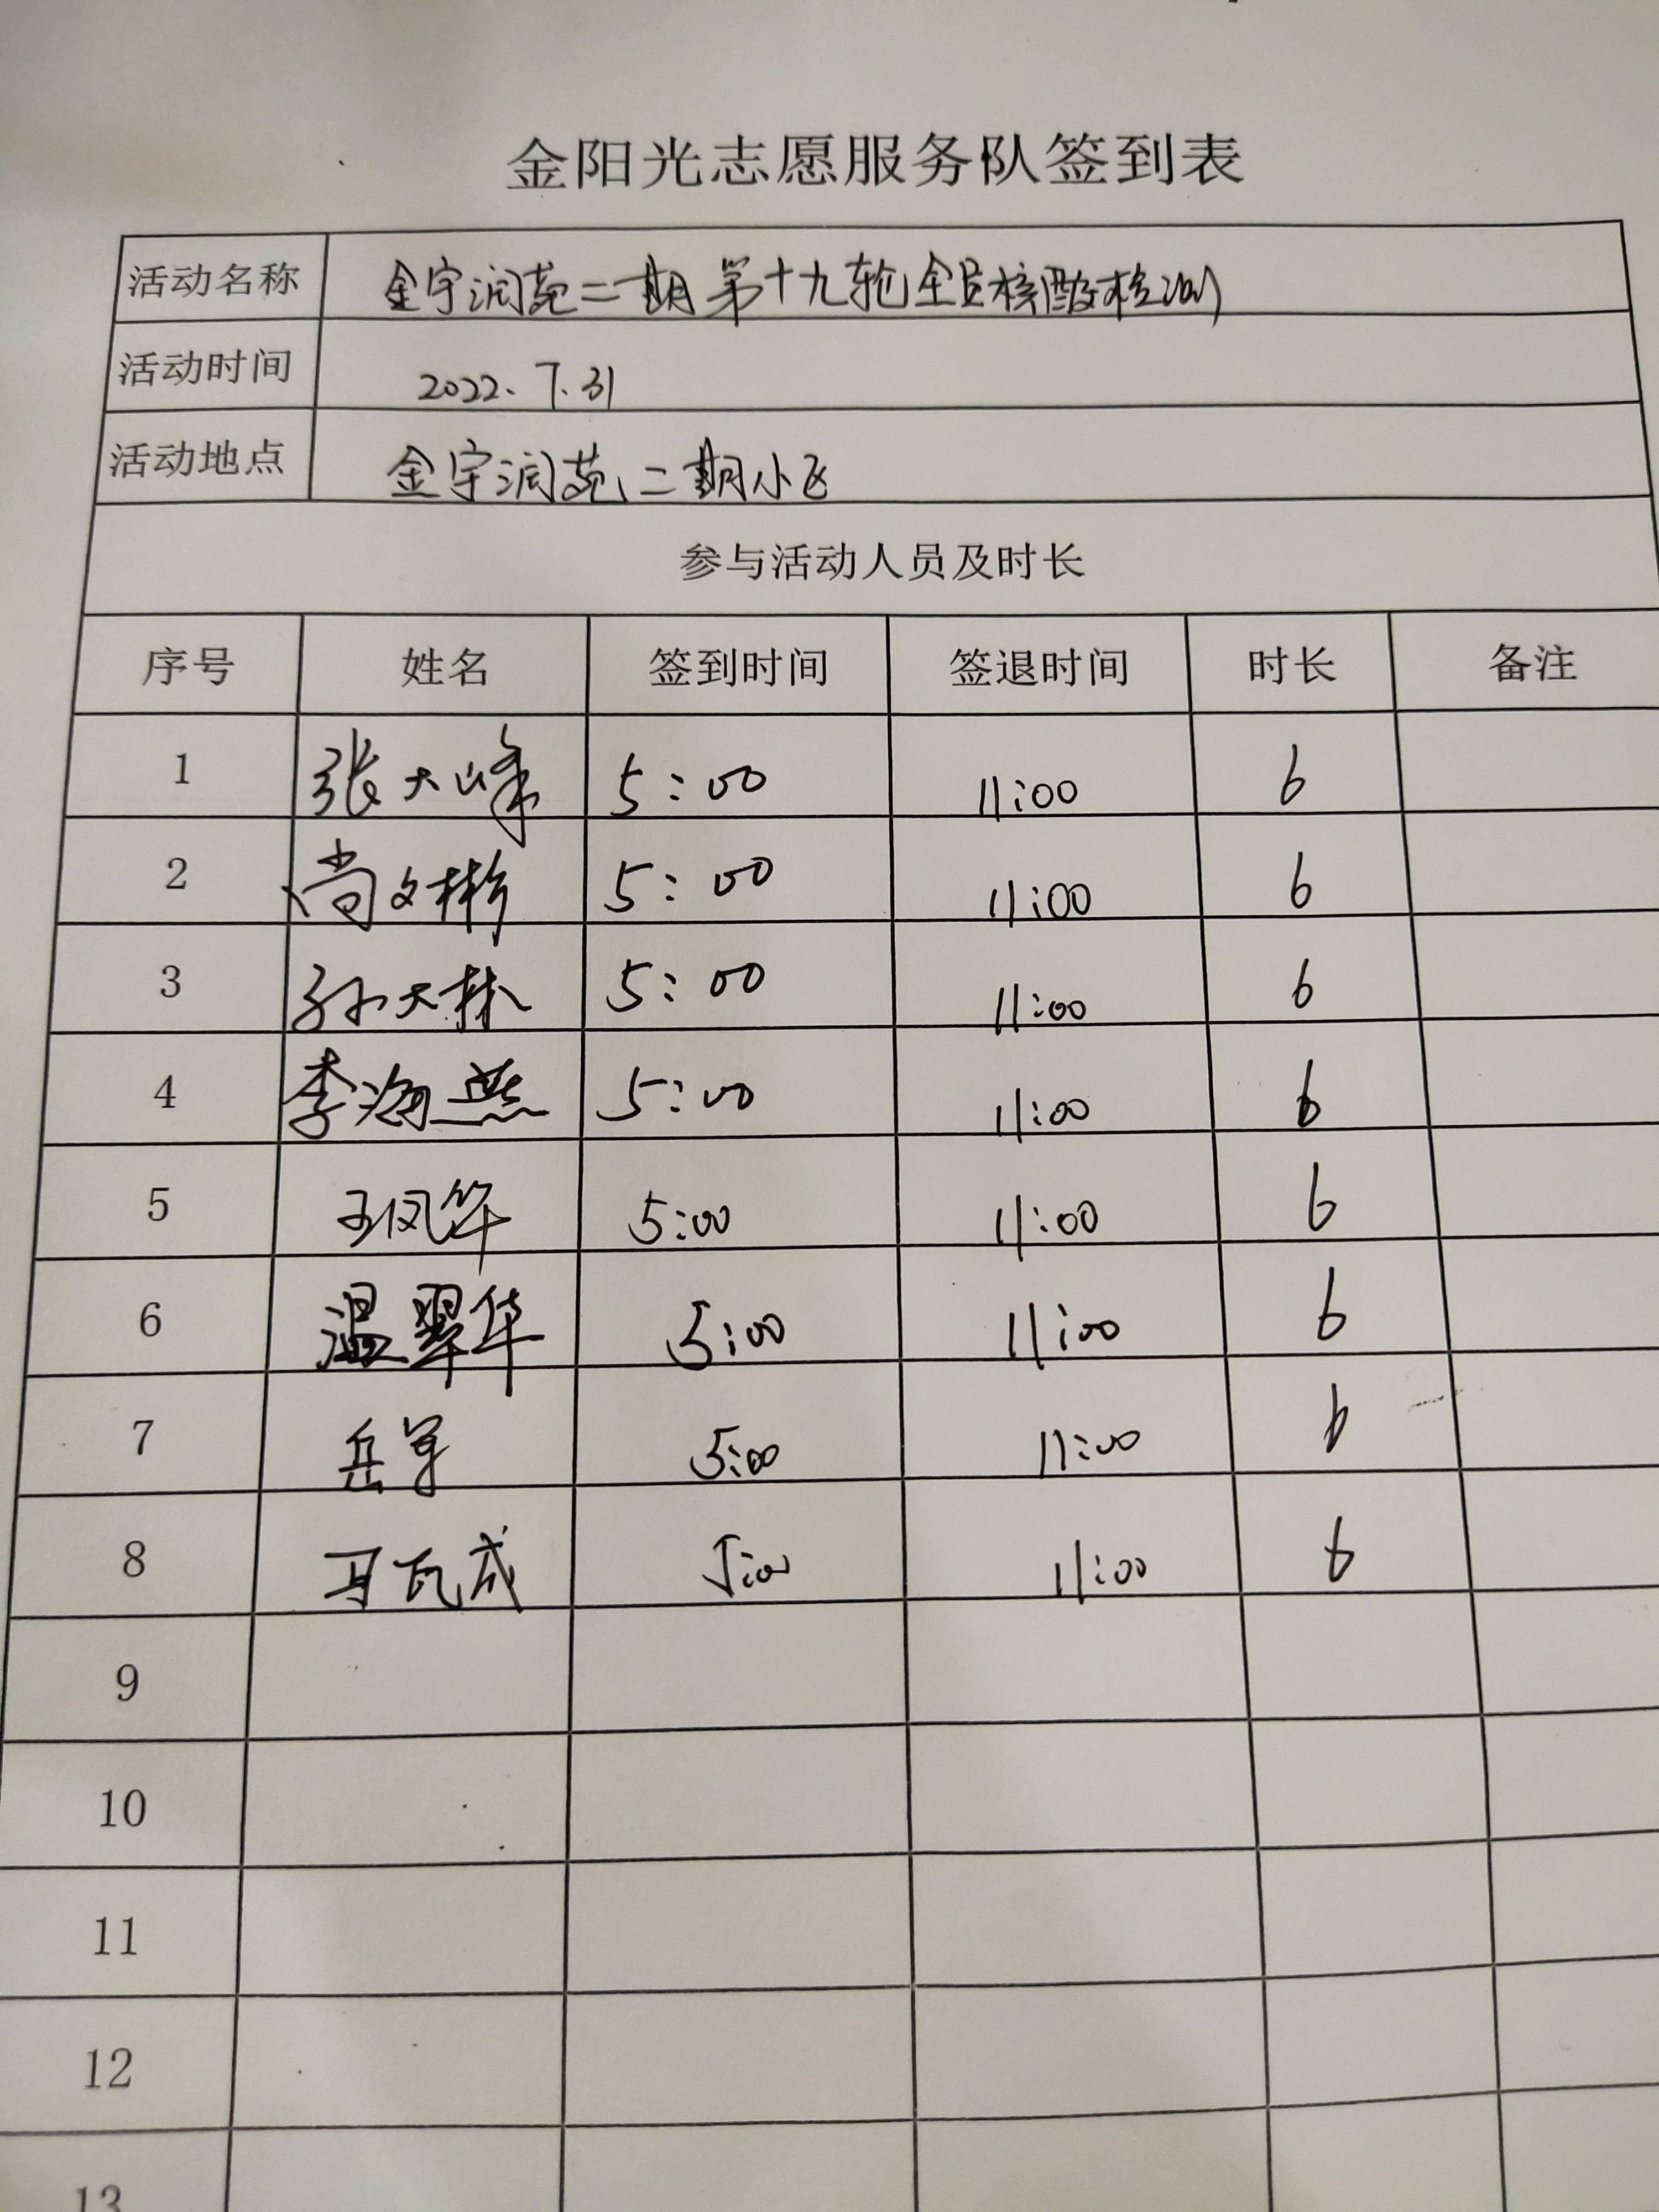 金阳光志愿服务队签到表
活动名称 金宇润苑二期第十九轮全员核酸检测
活动时间 2022.7.31
活动地点 金宇润苑二期小区
参与活动人员及时长
序号 姓名 签到时间 签退时间 时长 备注
1 张大峰 5:00 11:00 6
2 尚文彬 5:00 11:00 6
3 孙大林 5:00 11:00 6
4 李海燕 5:00 11:00 6
5 王凤华 5:00 11:00 6
6 温翠华 5:00 11:00 6
7 岳军 5:00 11:00 6
8 5:00 11:00 6
9
10
11
12
13